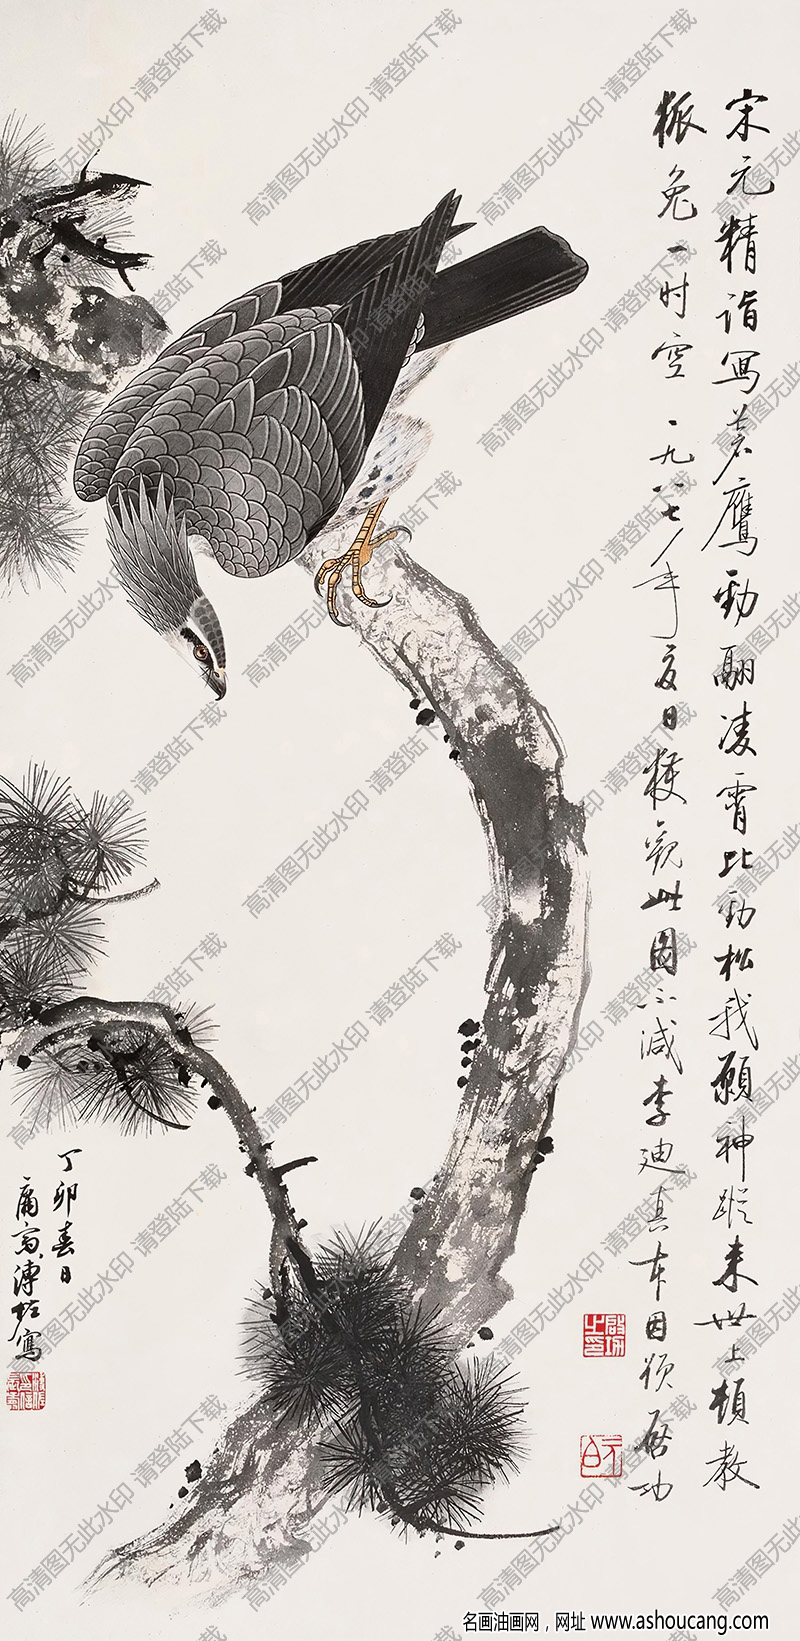 宋元精诣写苍鹰劲翮凌霄比劲松我愿神踪来世上顿教
狐兔一时空 一九八七年夏日获观此图不减李迪真本因题 启功
启功
之印
元白
丁卯春日
庸斋溥佐写
高清图无此水印 请登陆下载
名画油画网，网址 www.ashoucang.com